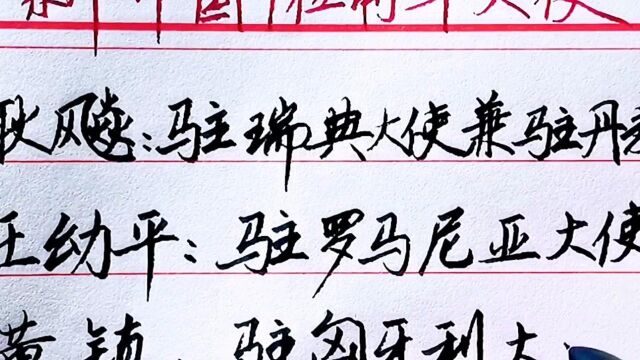 新中国首任驻外大使
耿飚:驻瑞典大使兼驻丹
王幼平:驻罗马尼亚大使
黄镇:驻匈牙利大